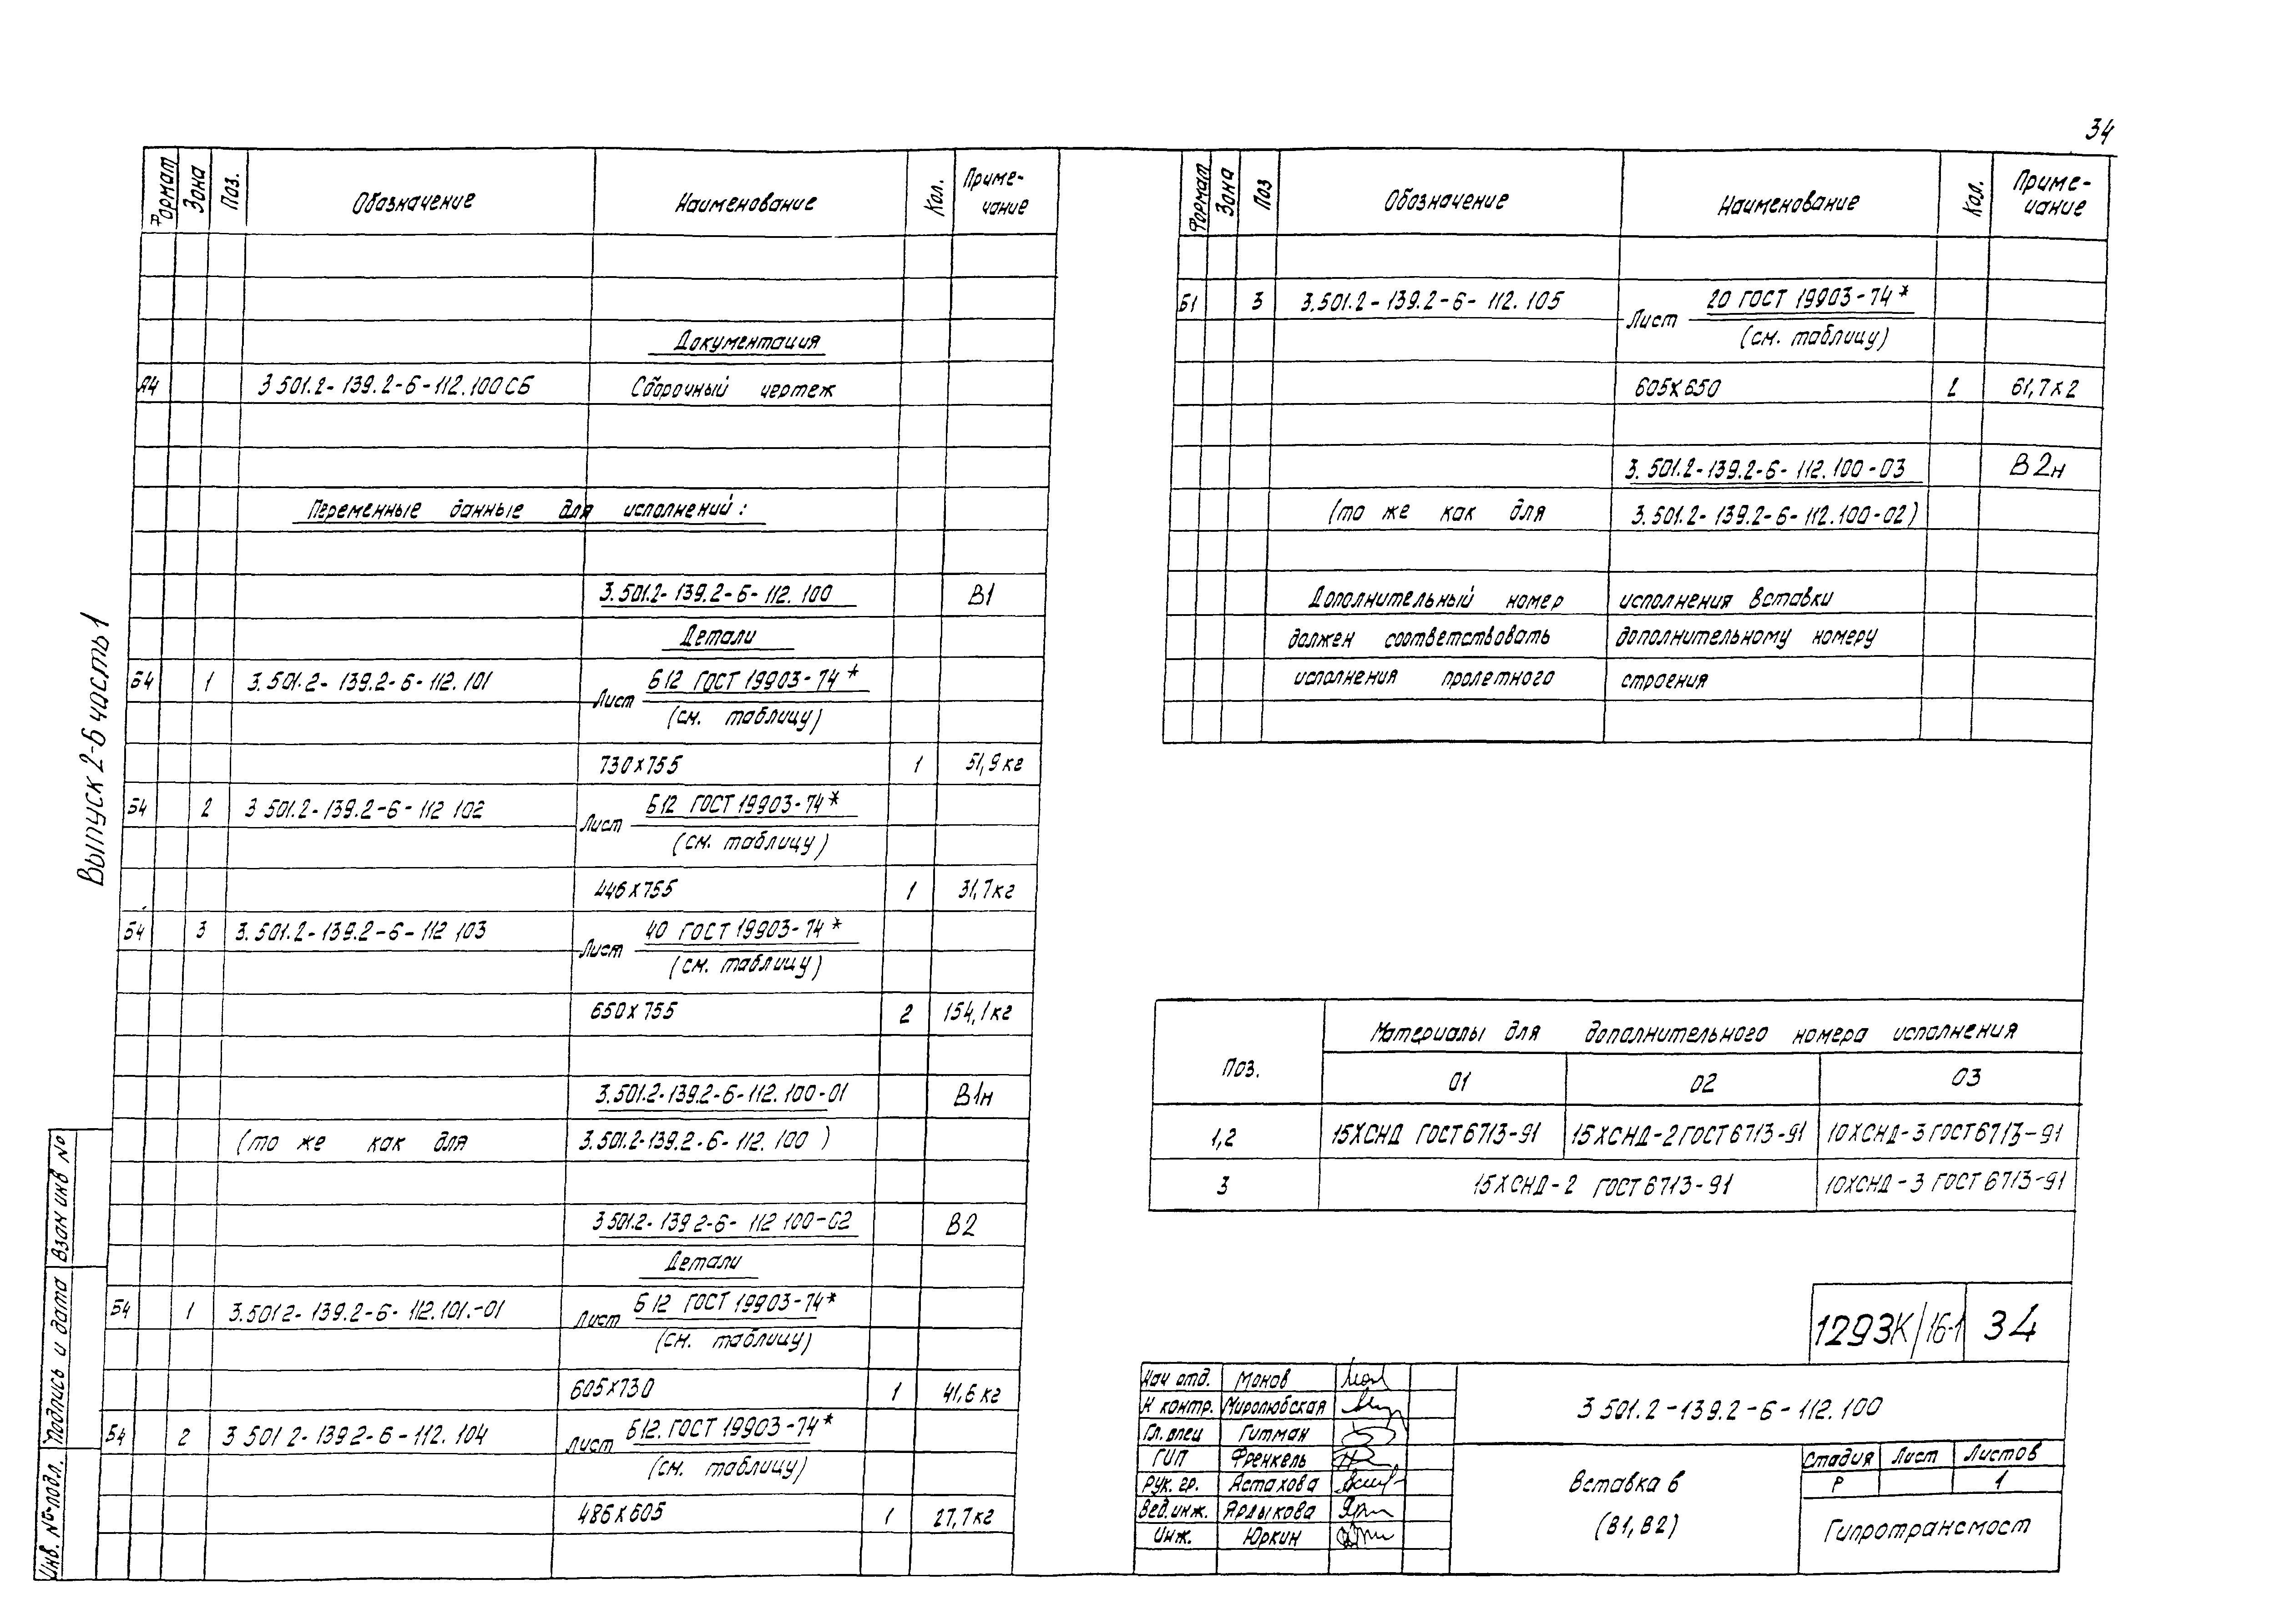 34
Выпуск 2-6 часть 1
Формат Зона Поз. Обозначение Наименование Кол. Приме-
чание
Документация
А4 3.501.2-139.2-6-112.100СБ Сборочный чертеж
Переменные данные для исполнений:
3.501.2-139.2-6-112.100 В1
Детали
Б4 1 3.501.2-139.2-6-112.101 Лист Б12 ГОСТ 19903-74*
(см. таблицу)
730х755 1 51,9кг
Б4 2 3 501.2-139.2-6-112 102 Лист Б12 ГОСТ 19903-74*
(см. таблицу)
446х755 1 31,7кг
Б4 3 3.501.2-139.2-6-112 103 Лист 40 ГОСТ 19903-74*
(см. таблицу)
650х755 2 154,1кг
3.501.2-139.2-6-112.100-01 В1н
(то же как для 3.501.2-139.2-6-112.100)
3 501.2-139 2-6-112 100-02 В2
Детали
Б4 1 3.501 2-139.2-6-112.101.-01 Лист Б12 ГОСТ 19903-74*
(см. таблицу)
605х730 1 41,6кг
Б4 2 3 501 2-139 2-6-112.104 Лист Б12. ГОСТ 19903-74*
(см. таблицу)
486х605 1 27,7кг
Формат Зона Поз Обозначение Наименование Кол. Приме-
чание
Б1 3 3.501.2-139.2-6-112.105 Лист 20 ГОСТ 19903-74*
(см. таблицу)
605х650 2 61,7х2
3.501.2-139.2-6-112.100-03 В2н
(то же как для 3.501.2-139.2-6-112.100-02)
Дополнительный номер исполнения вставки
должен соответствовать дополнительному номеру
исполнения пролетного строения
Поз. Материалы для дополнительного номера исполнения
01 02 03
1,2 15ХСНД ГОСТ6713-91 15ХСНД-2ГОСТ6713-91 10ХСНД-3ГОСТ6713-91
3 15ХСНД-2 ГОСТ6713-91 10ХСНД-3 ГОСТ6713-91
1293К/16-1 34
Нач отд. Монов
Н контр. Миролюбская
Гл. спец Гитман
ГИП Френкель
Рук. гр. Астахова
Вед.инж. Ярдыкова
Инж. Юркин
3 501.2-139.2-6-112.100
Вставка 6
(В1, В2)
Стадия Лист Листов
Р 1
Гипротрансмост
Инв. № подл. Подпись и дата Взам инв №